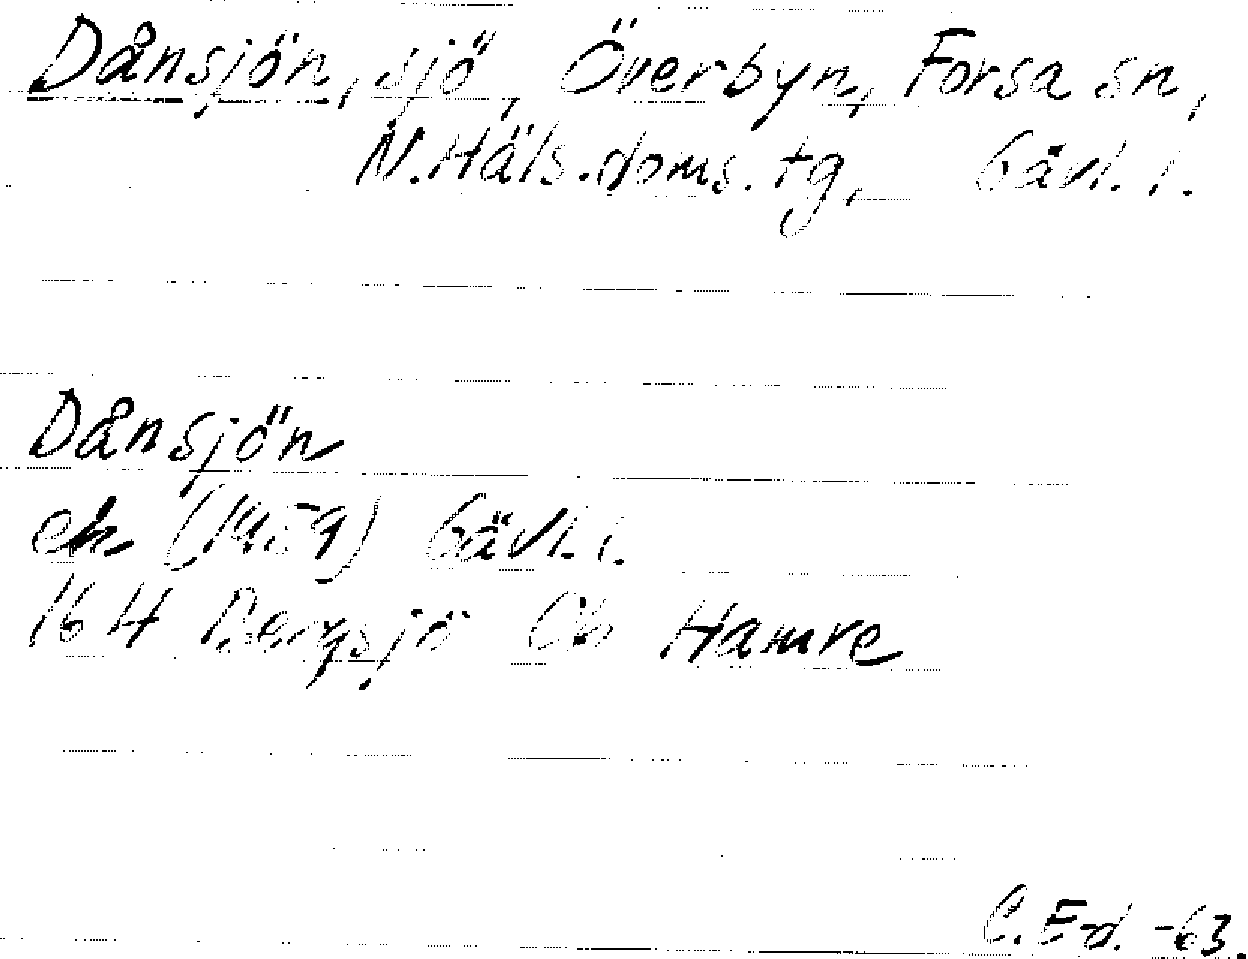 Dånsjön, sjö, Överbyn, Forsa sn,
N.Häls.doms.tg, Gävl. l.
Dånsjön
ek (1959) Gävl. l.
16 H Bergsjö Cb Hamre
C. E-d. -63.